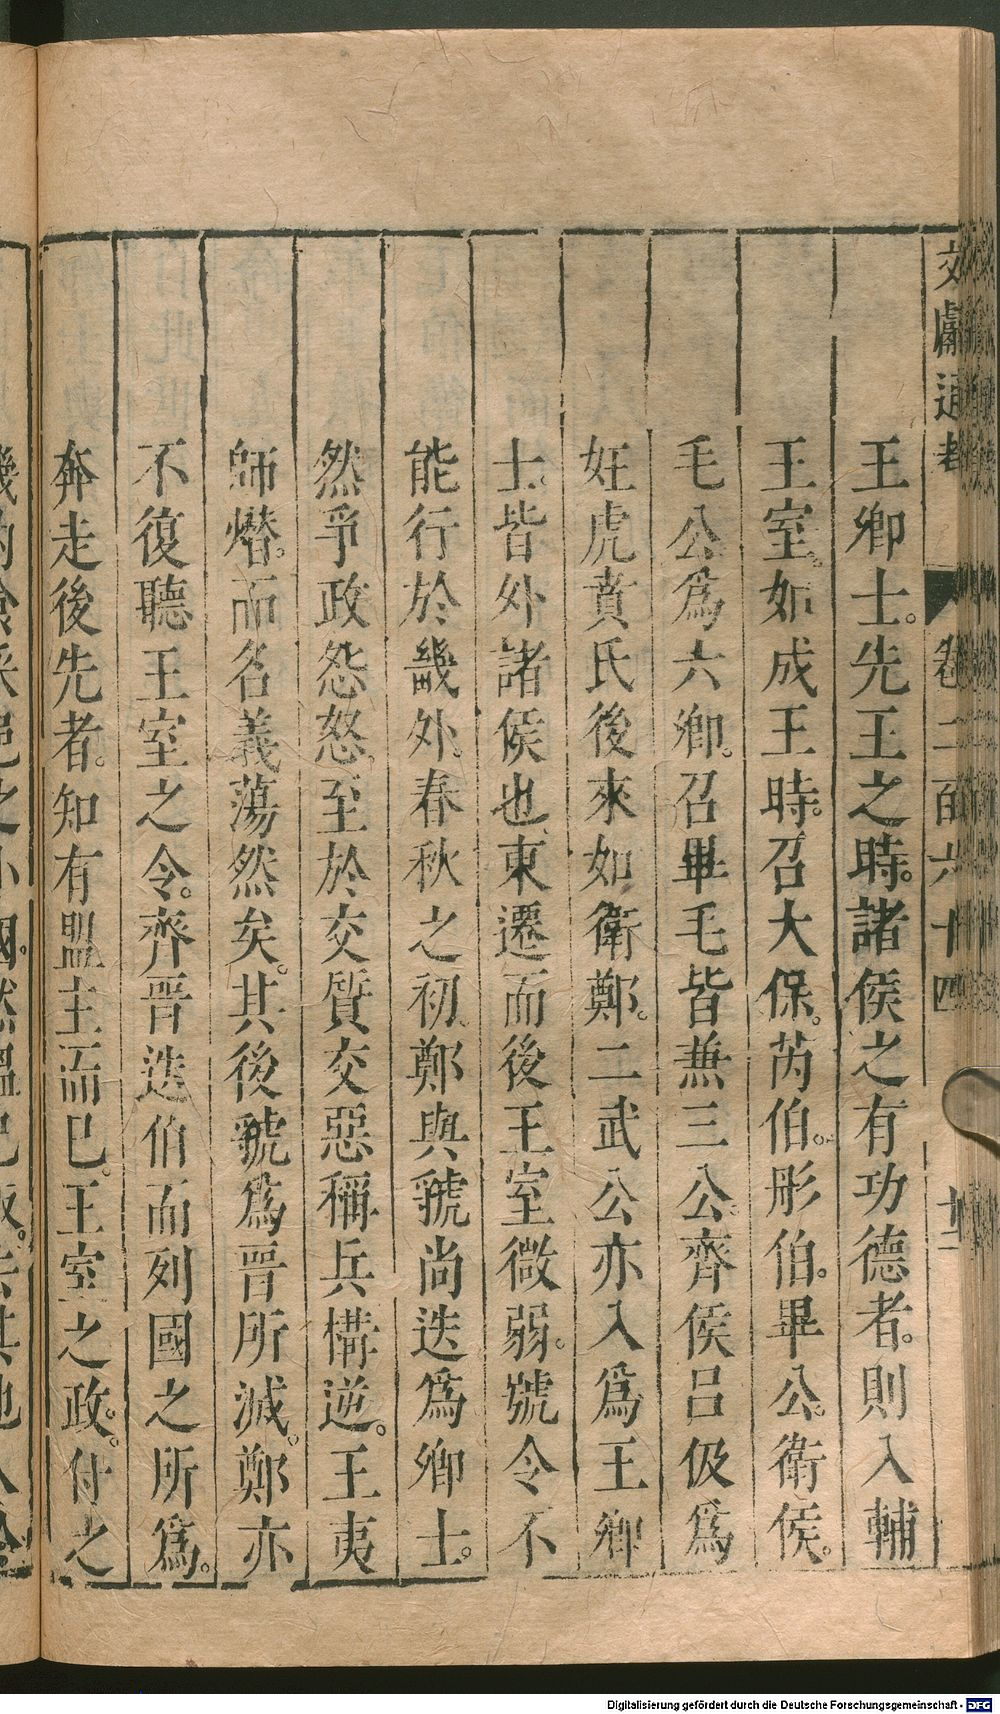 文獻通考 卷二百六十四 十二
王卿士。先王之時。諸侯之有功德者。則入輔
王室。如成王時。召大保。芮伯。彤伯。畢公。衛侯。
毛公爲六卿。召畢毛皆兼三公。齊侯呂伋爲
虎賁氏後來如衛鄭。二武公亦入爲王卿
士。皆外諸侯也。東遷而後王室微弱。號令不
能行於畿外。春秋之初。鄭與虢尚迭爲卿士。
然爭政怨怒。至於交質交惡稱兵構逆。王夷
師熸。而名義蕩然矣。其後虢爲晋所滅。鄭亦
不復聽王室之令。齊晋迭伯而列國之所爲。
奔走後先者。知有盟主而已。王室之政。付之
Digitalisierung gefördert durch die Deutsche Forschungsgemeinschaft - DFG